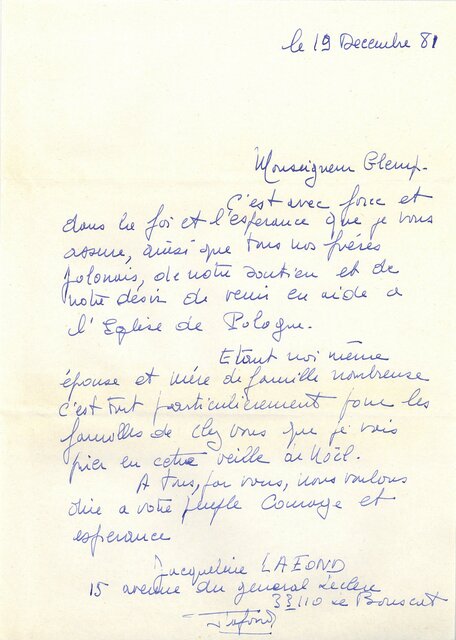 le 19 Decembre 81
Monseigneur Glemp.
C'est avec force et
dans la foi et l'esperance que je vous
assure, ainsi que tous nos frères
polonais, de notre soutien et de
notre désir de venir en aide a
l'Eglise de Pologne.
Etant moi même
épouse et mère de famille nombreuse
c'est tout particulièrement pour les
familles de chez vous que je vais
prier en cette veille de Noël.
A tous, par vous, nous voulons
dire a votre peuple Courage et
esperance
Jacqueline LAFOND
15 avenue du general Leclerc
33110 Le Bouscat
Lafond